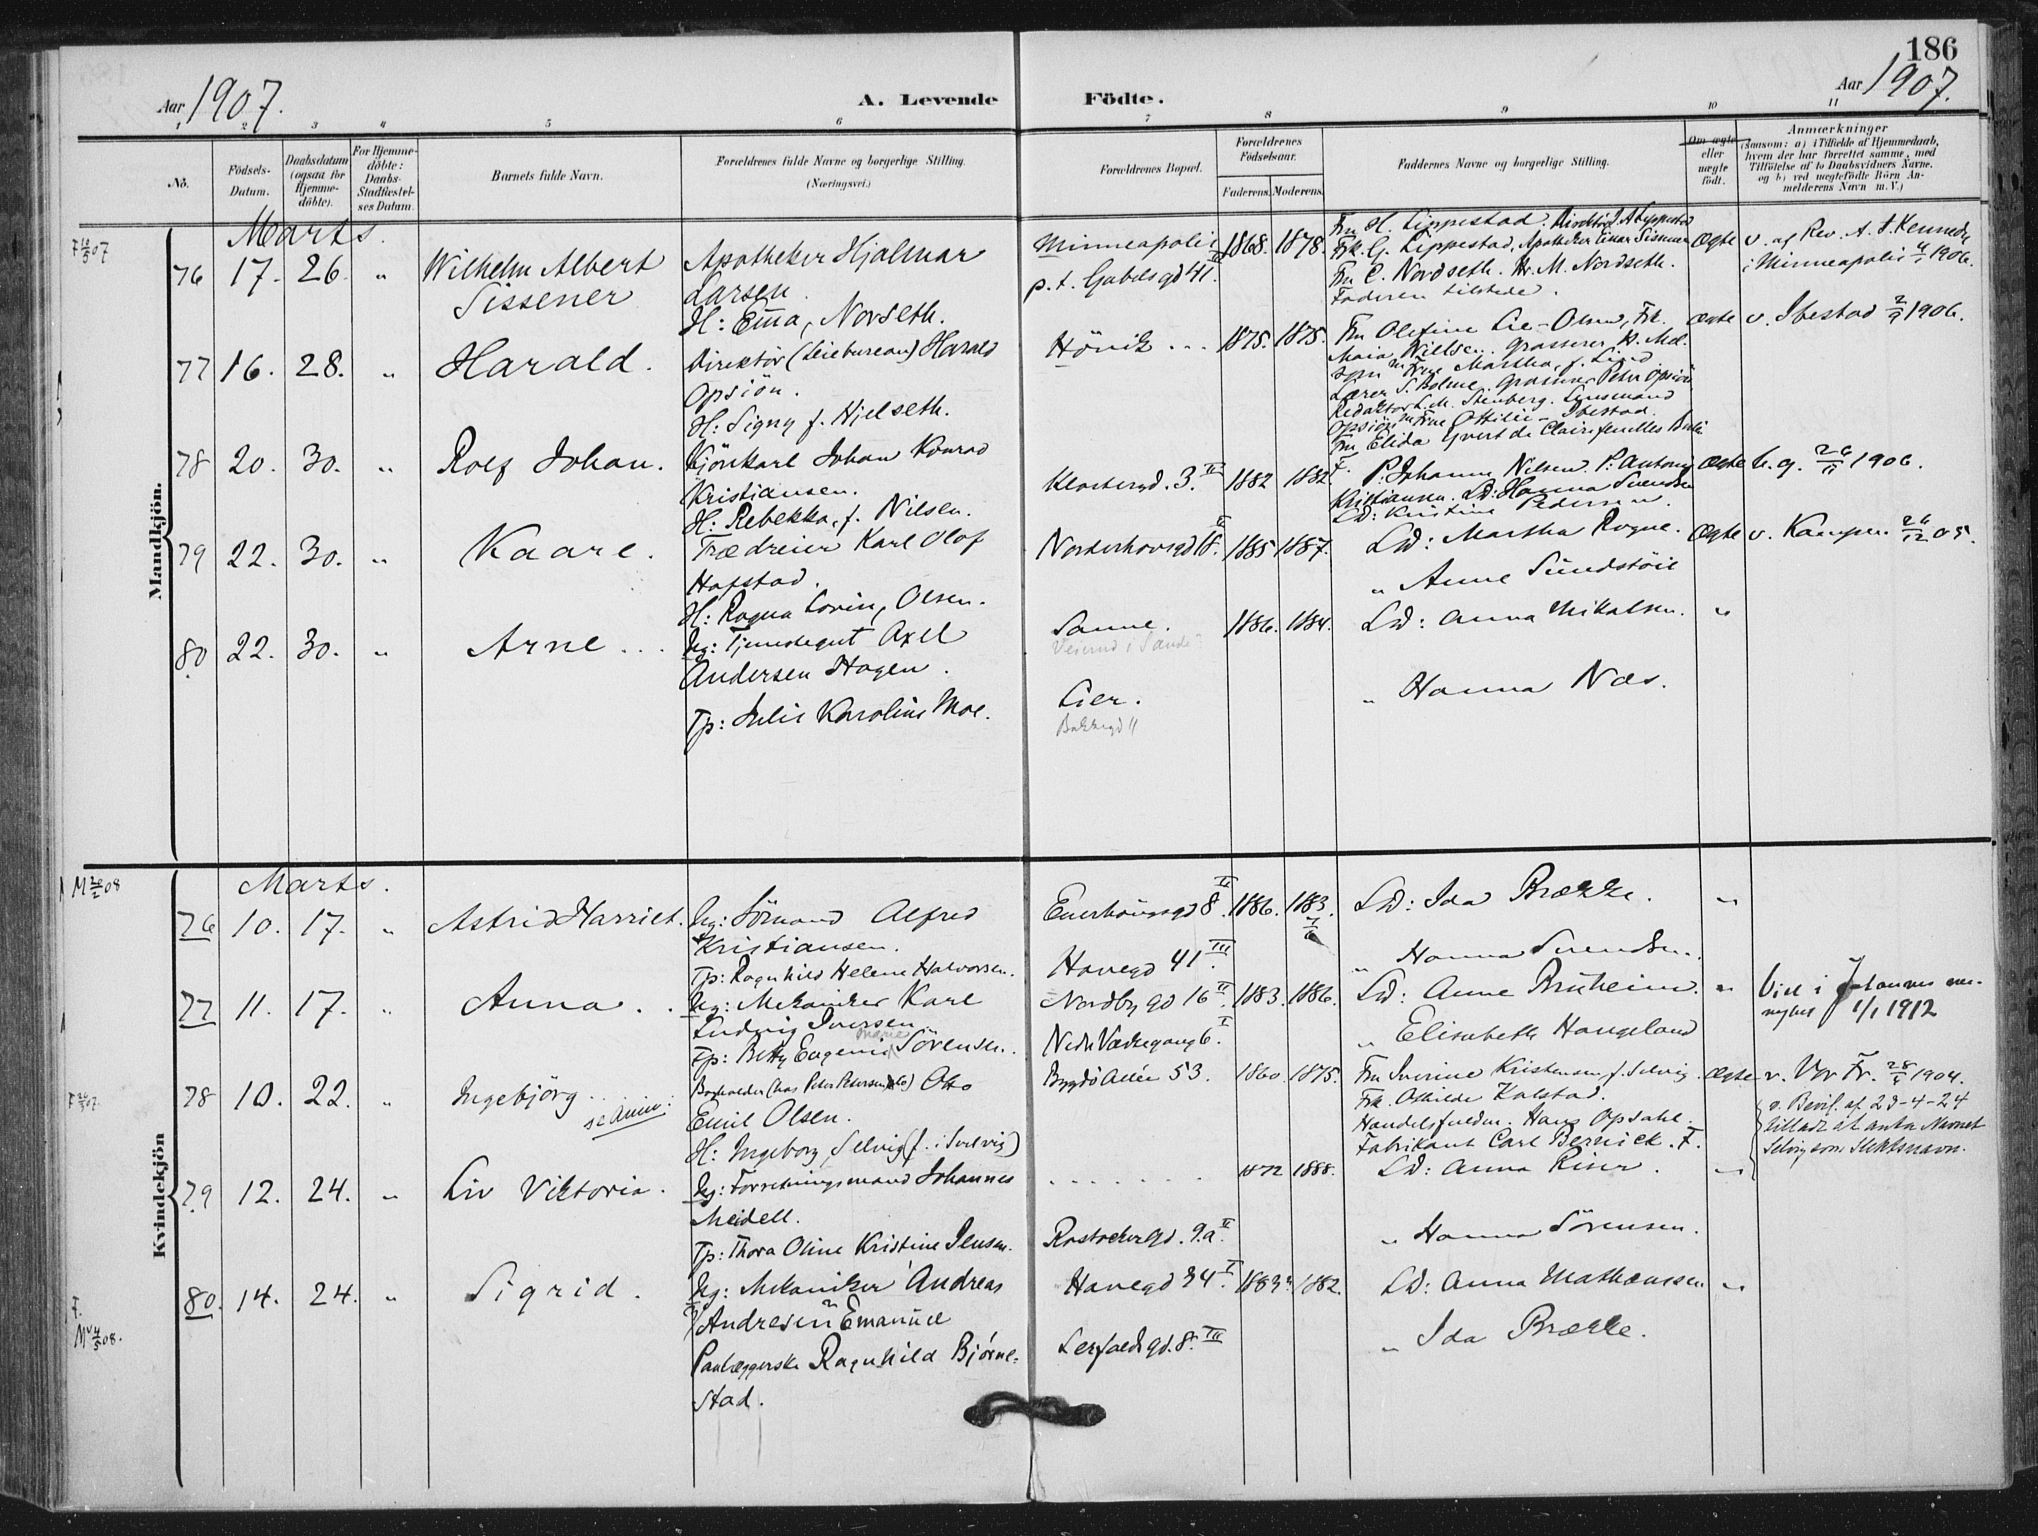 186
Aar 1907.
A. Levende Födte.
Aar 1907.
1 2 3 4 5 6 7 8 9 10 11
No.
Födsels-Datum.
Daabsdatum (ogsaa for Hjemme-döbte).
For Hjemme-döbte: Daabs-Stadfæstel-ses Datum.
Barnets fulde Navn.
Forældrenes fulde Navne og borgerlige Stilling.
(Næringsvei.)
Forældrenes Bopæl.
Forældrenes Födselsaar.
Faderens. Moderens.
Faddernes Navne og borgerlige Stilling.
Om ægte eller uægte födt.
Anmærkninger
(saasom: a) i Tilfælde af Hjemmedaab, hvem der har forrettet samme, med Tilföielse af to Daabsvidners Navne. og b) ved uægtefödte Börn An-melderens Navn m. V.)
Mandkjön.
Marts.
76 17. 26. " Wilhelm Albert Sissener
Apotheker Hjalmar
Larsen
H: Emma, Norseth.
Minneapolis
p. t. Gabelsgd 41.
1868. 1878.
Fru H. Lippestad. Direktör J. A. Lippestad
Frk. G. Lippestad, Apotheker Einar Sissener
Fru C. Nordseth. Hr. M. Nordseth.
Faderen tilstede.
Ægte
v. af Rev. A. J. Kennedy
i Minneapolis 1906.
77 16. 28. " Harald.
Direktör (Leiebureau) Harald
Opsiön.
H: Signy f. Hjelseth.
Hövik ...
1875. 1875.
Fru Olefine Lie-Olsen, Frk.
Maia Nielsen. Grosserer
Fru Martha, f. Lind
Lærer S. Bolme. Grosserer Peter Opsiön
Redaktör Stenberg. Lensmand
Opsiön m Frue Ottilie - Ibestad.
Fru Elida
Ægte v. Ibestad 2/9 1906.
78 20. 30. " Rolf Johan.
Kjörekarl Johan Konrad
Kristiansen.
H: Rebekka, f. Nilsen.
Klostergd. 3. II
1882 1882
F. P. Johanne Nilsen. P: Antony
Kristiansen. Ld: Hanna Svendsen
Ld: Kristine Pedersen
Ægte b. g. 26/11 1906.
79 22. 30. " Kaare.
Trædreier Karl Olaf
Hofstad.
H: Ragna Lovin, Olsen.
Norderhovsgd 18. II
1885 1887.
Ld: Martha Rogne.
" Anne Sundstöil
Ægte v. Kampen 26/12 05.
80 22. 30. " Arne ...
Ug: Tjenestegut Axel
Andersen Hagen.
Tp: Julie Karoline Moe.
Sanne.
Lier.
Bakkegd 11
1886. 1884.
Ld: Anna Mikalsen.
" Hanna Næs.
"
Kvindekjön
Marts.
76 10. 17. " Astrid Harriet.
Ug: Sömand Alfred
Kristiansen.
Tp: Ragnhild Helene Halvorsen.
Enerhaugsgd 8 II
Havegd 41 III
1886. 1883.
Ld: Ida Brække.
" Hanna Svendsen.
"
77 11. 17. " Anna ..
Ug: Mekaniker Karl
Ludvig Iversen
Tp: Betty Eugenie Marie Sörensen.
Nordbygd 16 II
Nedre Værkegang 6. I
1883. 1886.
Ld: Anne Bruheim.
" Elisabeth Haugeland
"
Viet i Johannes me-
nighet 1/1 1912
78 10. 22. " Ingebjörg ..
se anm:
Bogholder (hos Peter Petersen & Co) Otto
Emil Olsen.
H: Ingeborg, Selvig (f. i Selvig)
Bygdö Allée 53.
1860. 1875.
Fru Sverine Kristensen f. Selvig.
Frk. Othilde Kolstad.
Handelsfuldm. Hans Opsahl.
Fabrikant Carl Bernick. F.
Ægte v. Vor Fr. 28/5 1904.
e. Bevil. af 23-4-24
tilladt at anta Navnet
Selvig som Slektsnavn.
79 12. 24. " Liv Viktoria.
Ug: Forretningsmand Johannes
Meidell.
Tp: Thora Oline Kristine Jensen.
Rostockergd. 9.a. II
1872 1888.
Ld: Anna Riser.
" Hanna Sörensen.
"
80. 14. 24. " Sigrid.
Ug: Mekaniker Andreas
Andresen Emanuel
Paalæggerske Ragnhild Bjørne-
stad.
Havegd 34 I
Lerfaldsgd. 8. III
1883 1882.
Ld: Anna Mathæussen
" Ida Brække.
"